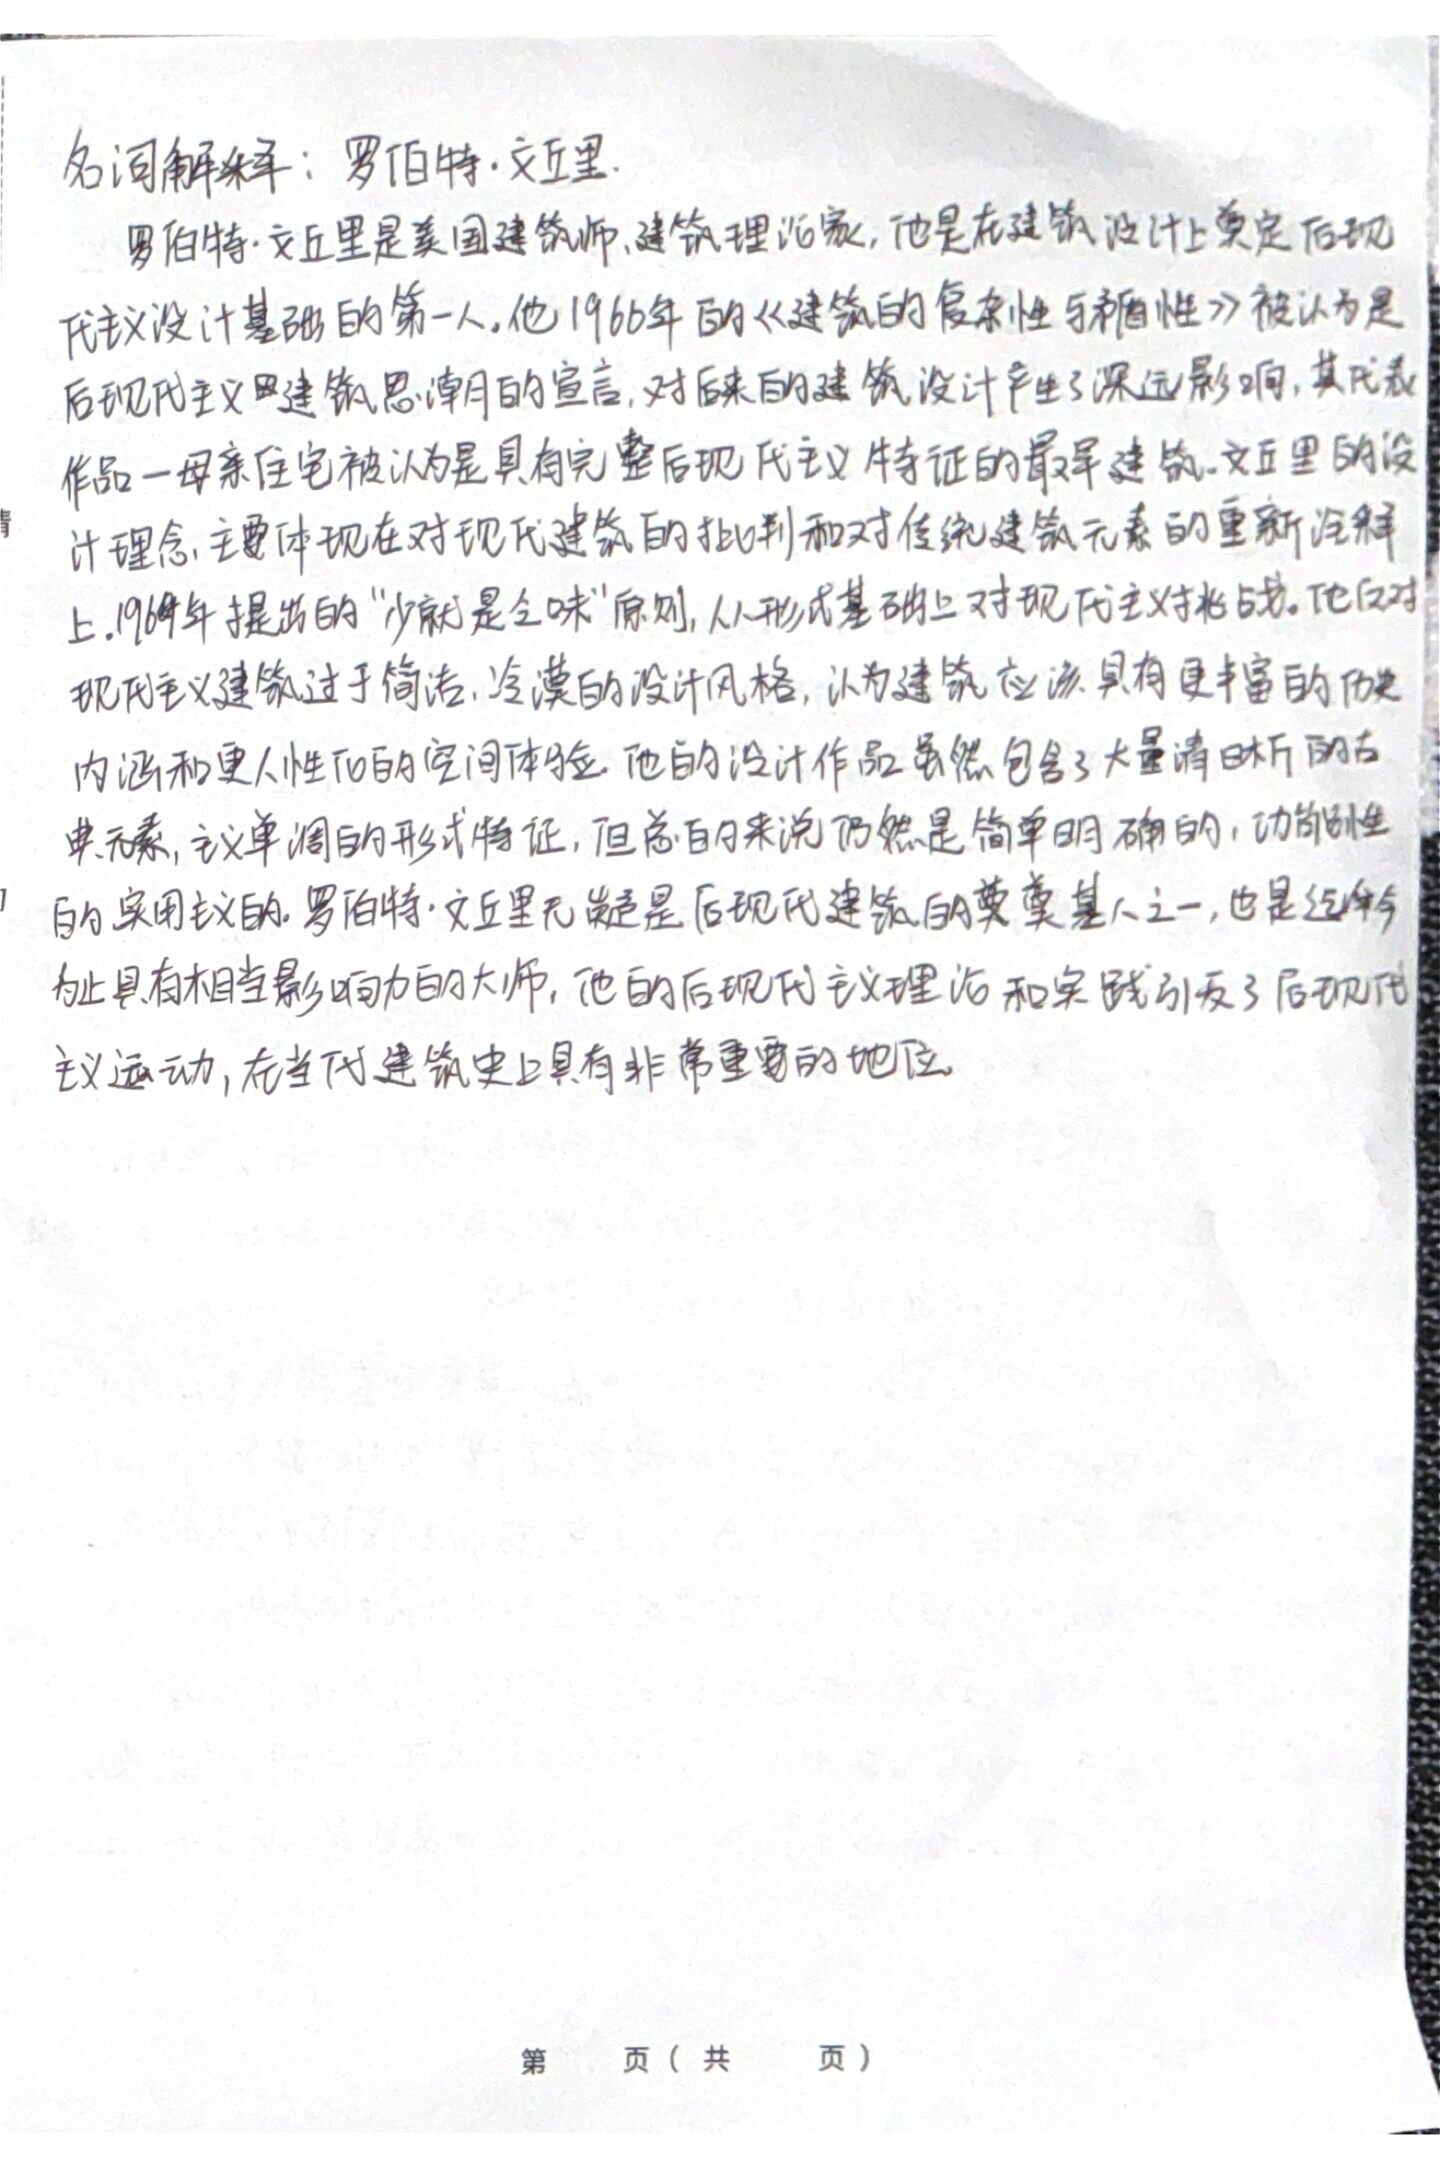 名词解释：罗伯特·文丘里.
罗伯特·文丘里是美国建筑师、建筑理论家，他是在建筑设计上奠定后现
代主义设计基础的第一人。他1966年的《建筑的复杂性与矛盾性》被认为是
后现代主义建筑思潮的宣言，对后来的建筑设计产生了深远影响，其代表
作品—母亲住宅被认为是具有完整后现代主义特征的最早建筑。文丘里的设
计理念，主要体现在对现代建筑的批判和对传统建筑元素的重新诠释
上。1969年提出的“少就是乏味”原则，从形式基础上对现代主义挑战。他反对
现代主义建筑过于简洁、冷漠的设计风格，认为建筑应该具有更丰富的历史
内涵和更人性化的空间体验。他的设计作品虽然包含了大量清晰的古
典元素，主义单调的形式特征，但总的来说仍然是简单明确的，功能性
的，实用主义的。罗伯特·文丘里无疑是后现代建筑的奠基人之一，也是迄今
为止具有相当影响力的大师，他的后现代主义理论和实践引发了后现代
主义运动，在当代建筑史上具有非常重要的地位。
第 页（共 页）